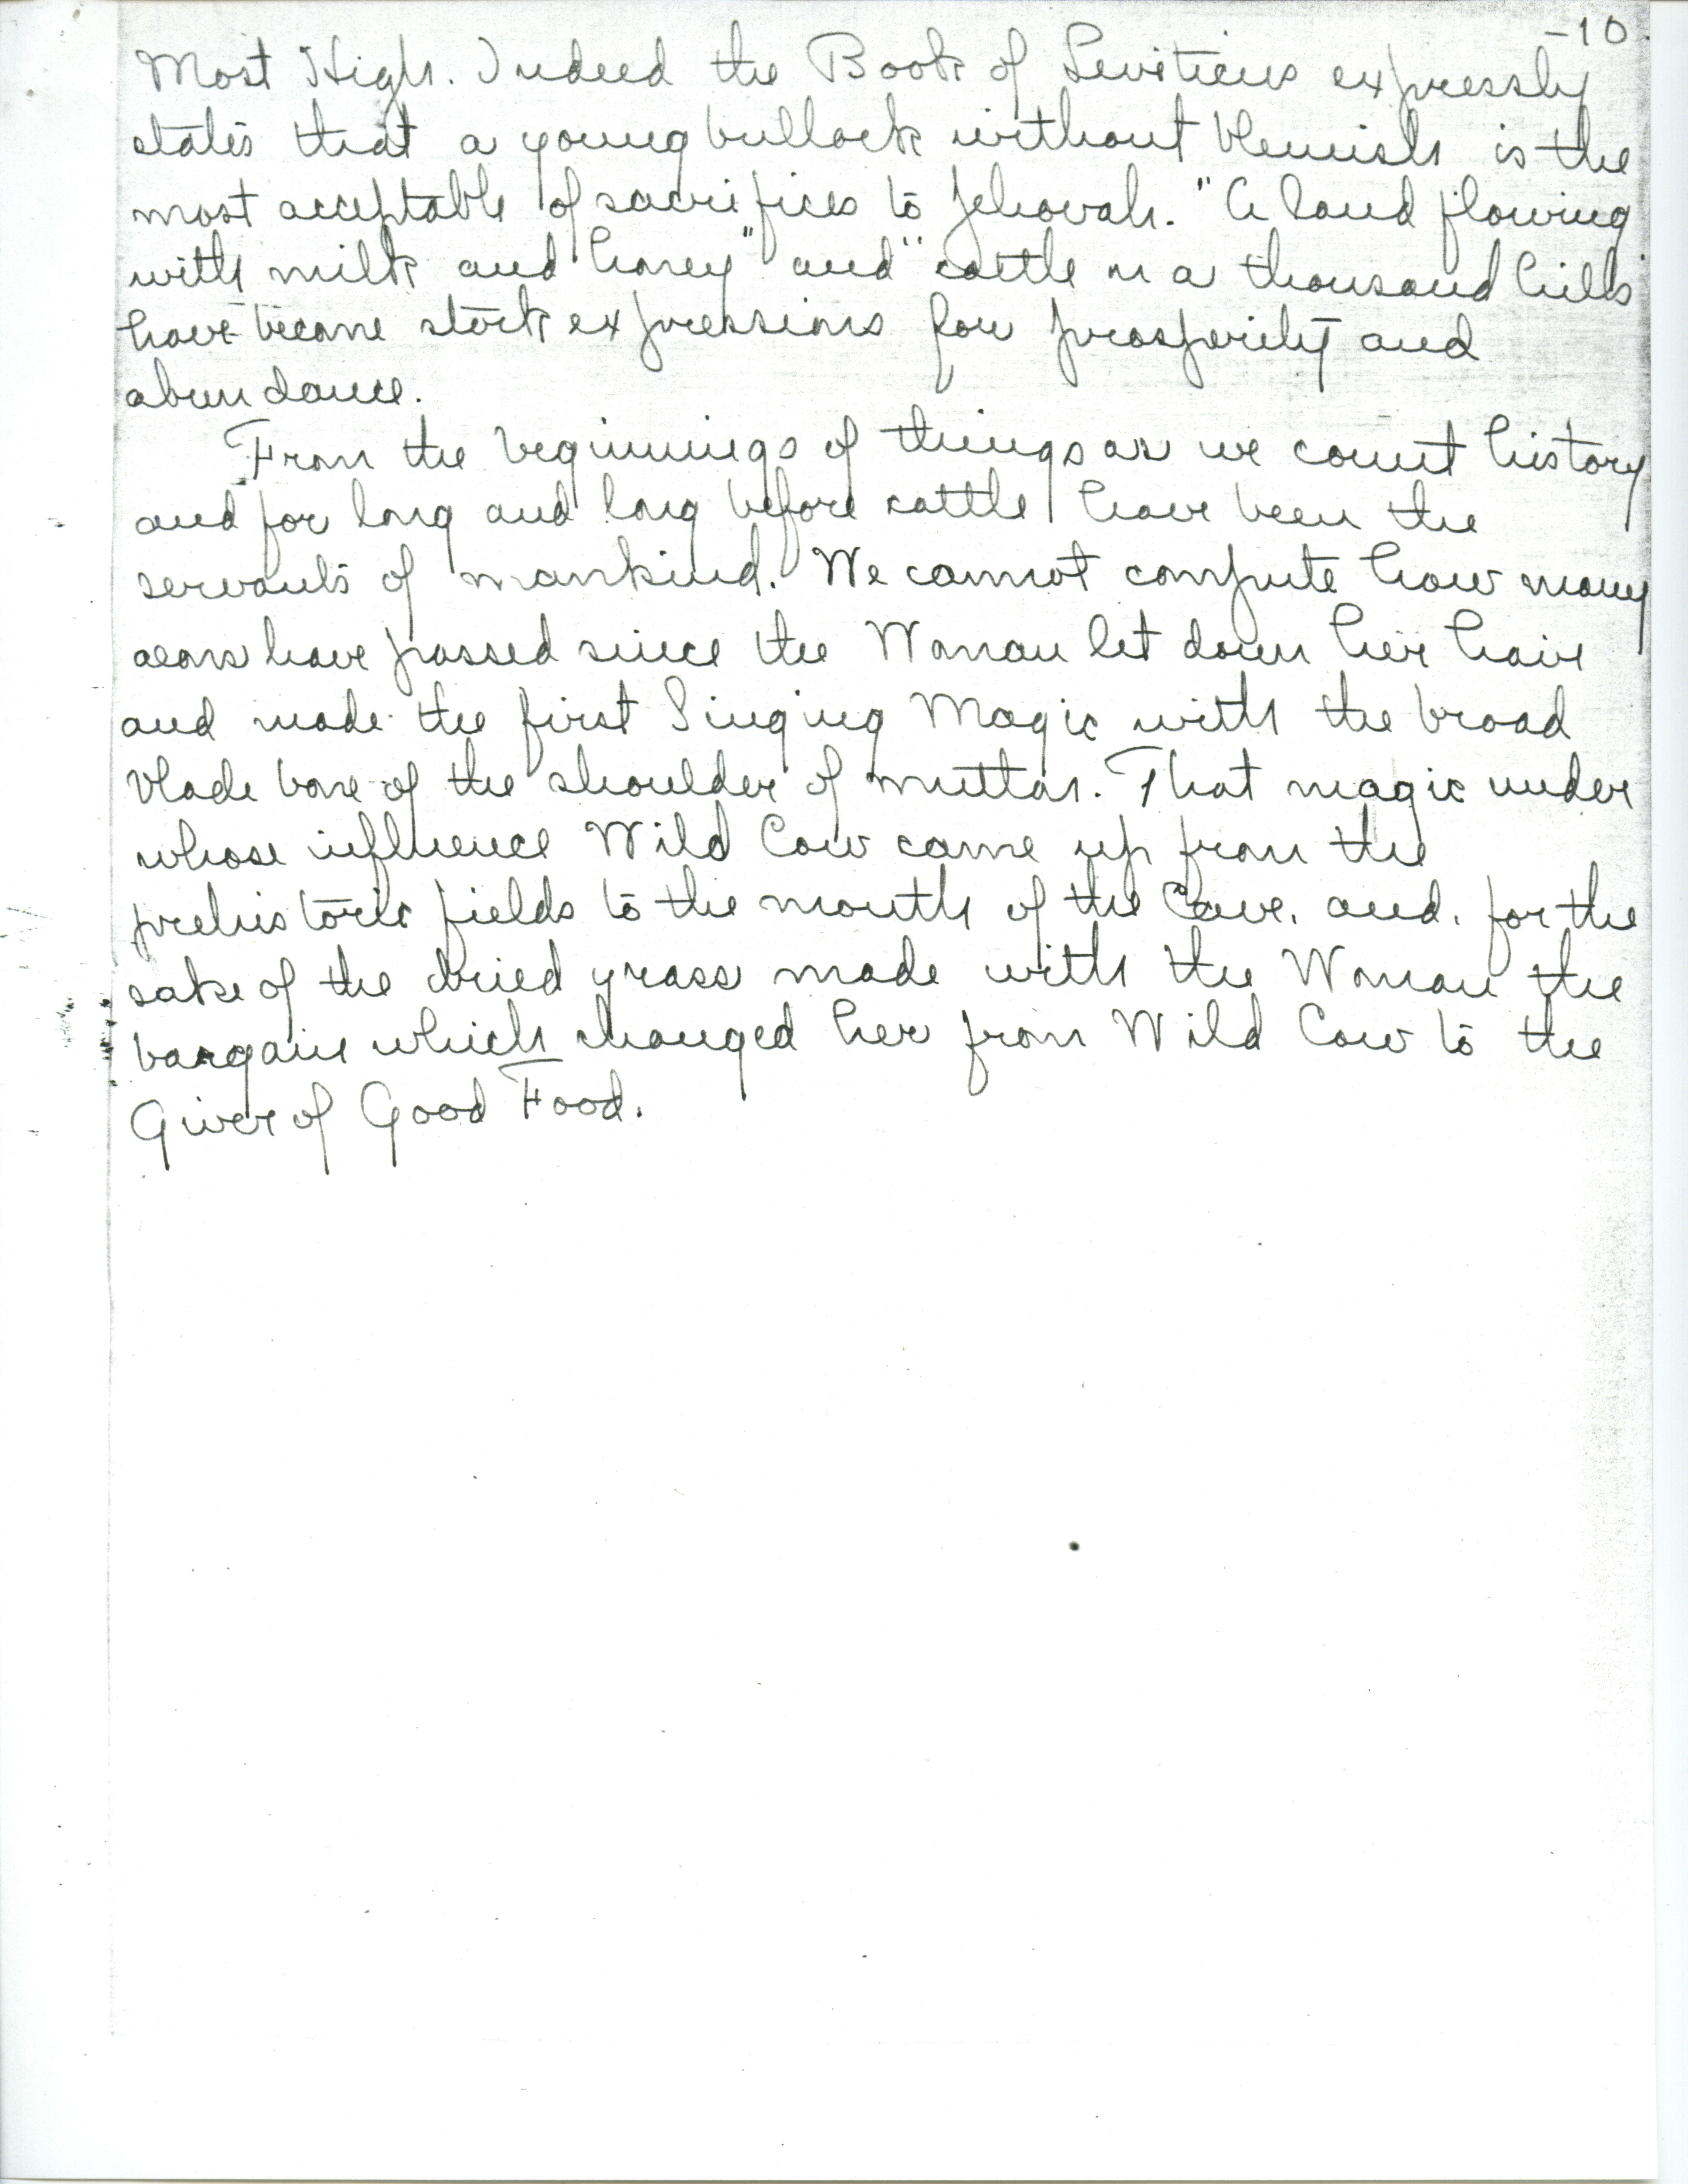 -10.
Most High. Indeed the Book of Leviticus expressly
states that a young bullock without blemish is the
most acceptable of sacrifices to Jehovah. "A land flowing
with milk and honey" and "cattle on a thousand hills"
have become stock expressions for prosperity and
abundance.
From the beginnings of things as we count history
and for long and long before cattle have been the
servants of mankind. We cannot compute how many
aeons have passed since the Woman let down her hair
and made the first Singing Magic with the broad
blade bone of the shoulder of mutton. That magic under
whose influence Wild Cow came up from the
prehistoric fields to the mouth of the Cave, and, for the
sake of the dried grass made with the Woman the
bargain which changed her from Wild Cow to the
Giver of Good Food.